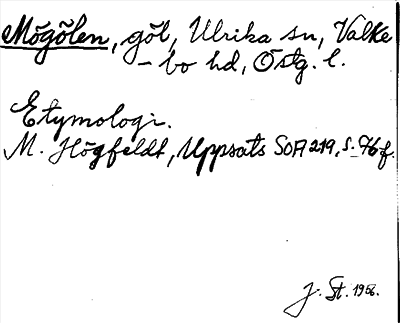 Mögölen, göl, Ulrika sn, Valke
- bo hd, Östg. l.
Etymologi.
M. Högfeldt, Uppsats SOFI 219, s. 76 f.
J. St. 1956.